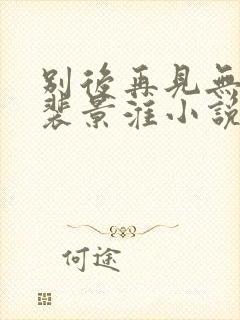 別後再見無
裴景淮小說
何途